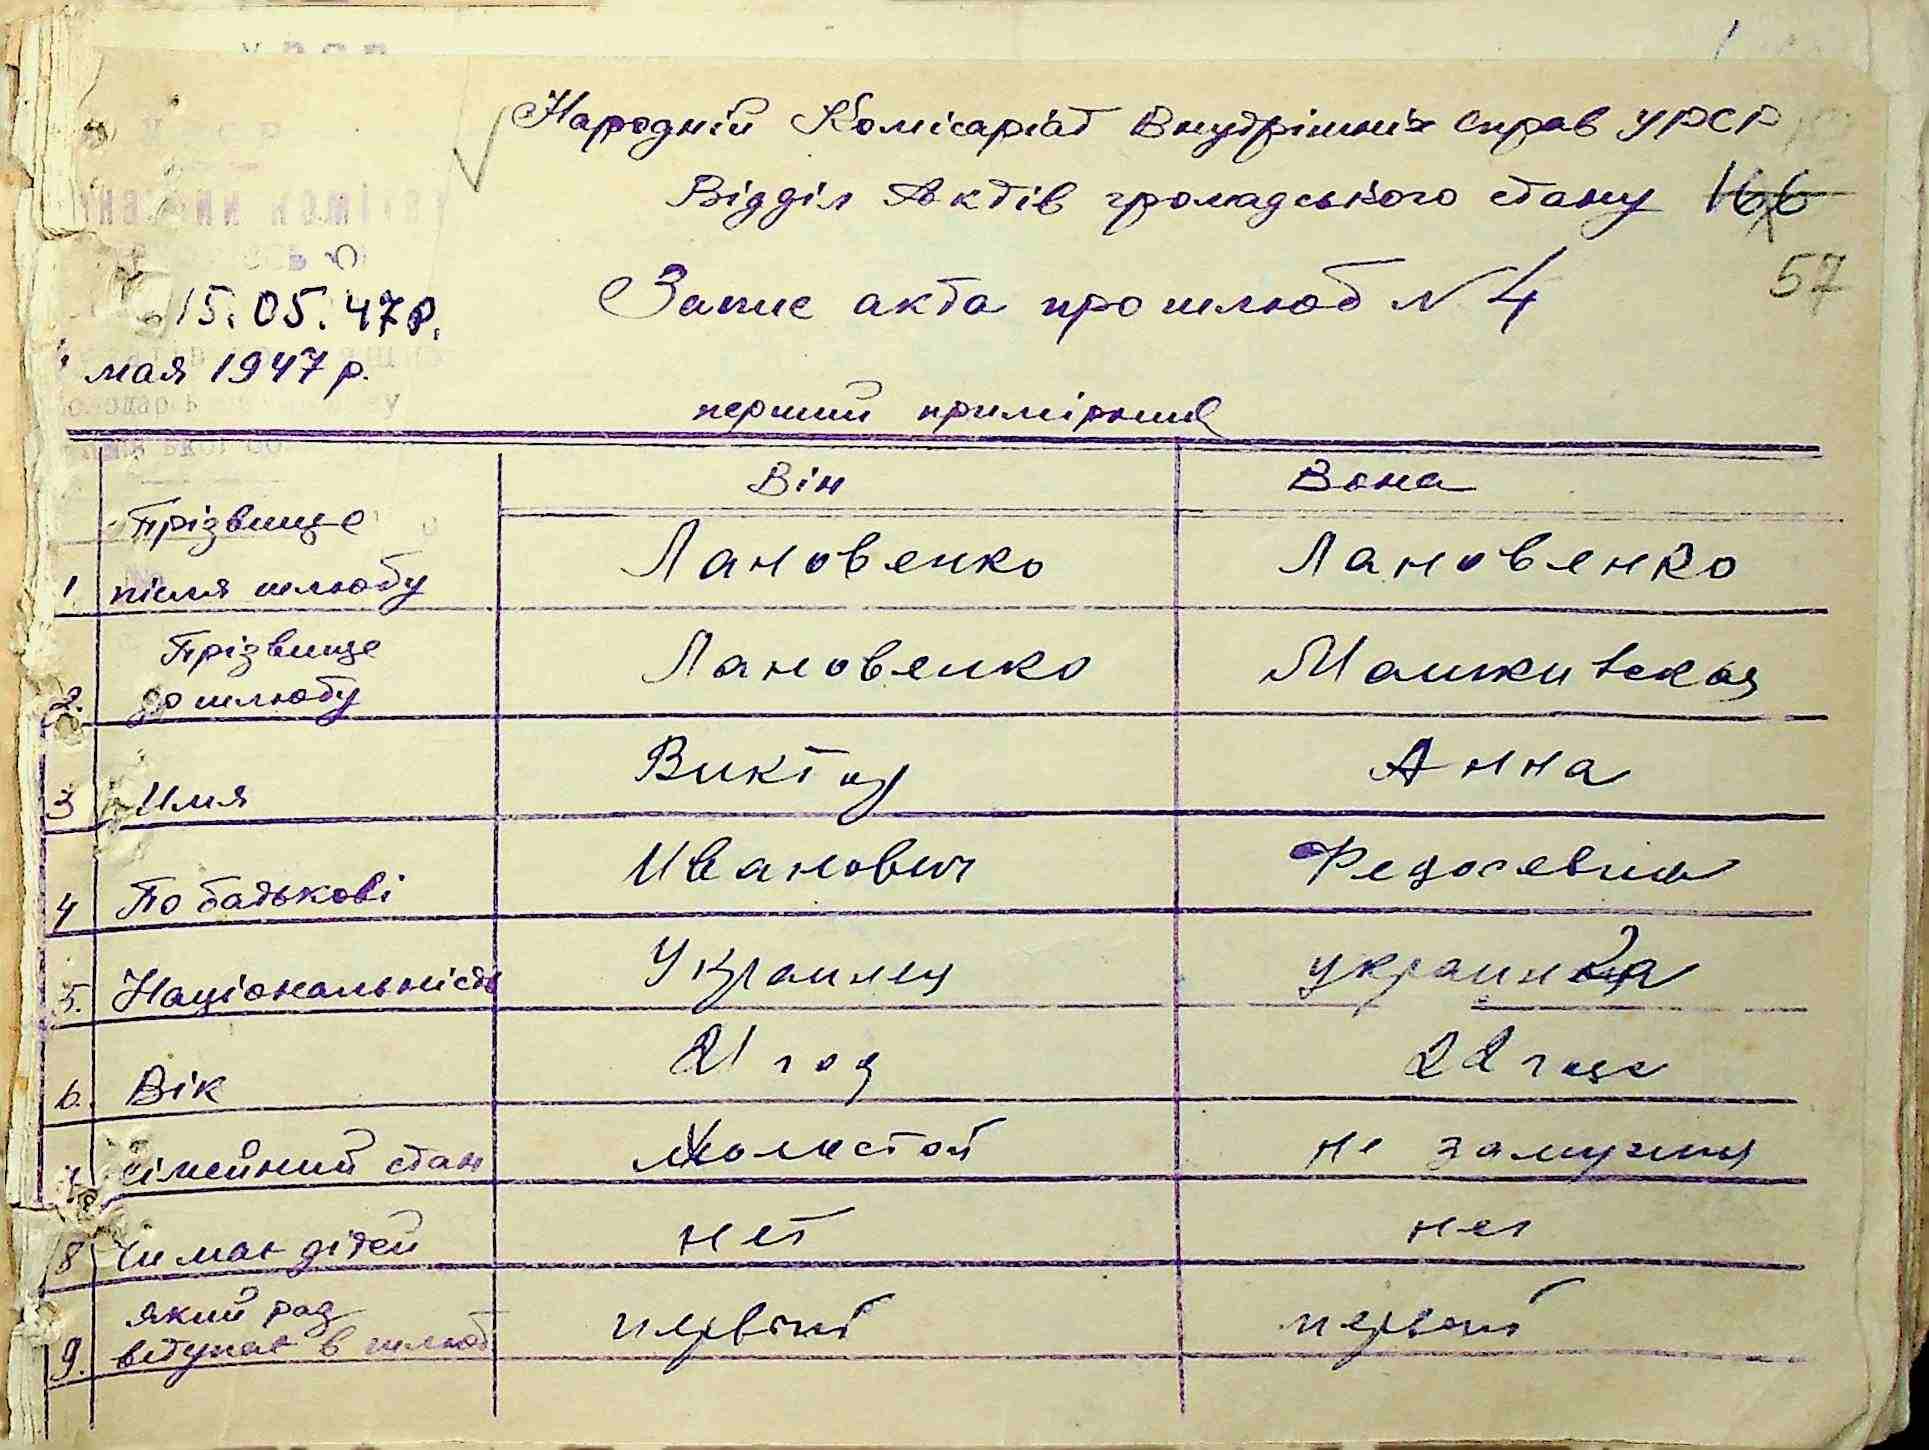 Народній Комісаріат Внутрішніх справ УРСР
Відділ Актів громадського стану 166
57
Запис акта про шлюб N 4
15.05.47р.
мая 1947 р.
перший примірник
Він Вона
1. Прізвище після шлюбу Лановенко Лановенко
2. Прізвище до шлюбу Лановенко
3 Имя Виктор Анна
4 По батькові Иванович
5. Національність Украинец украинка
6. Вік 21 год 22 года
7. сімейний стан холостой не замужня
8 Чи має дітей нет нет
9. який раз вступає в шлюб первый первый